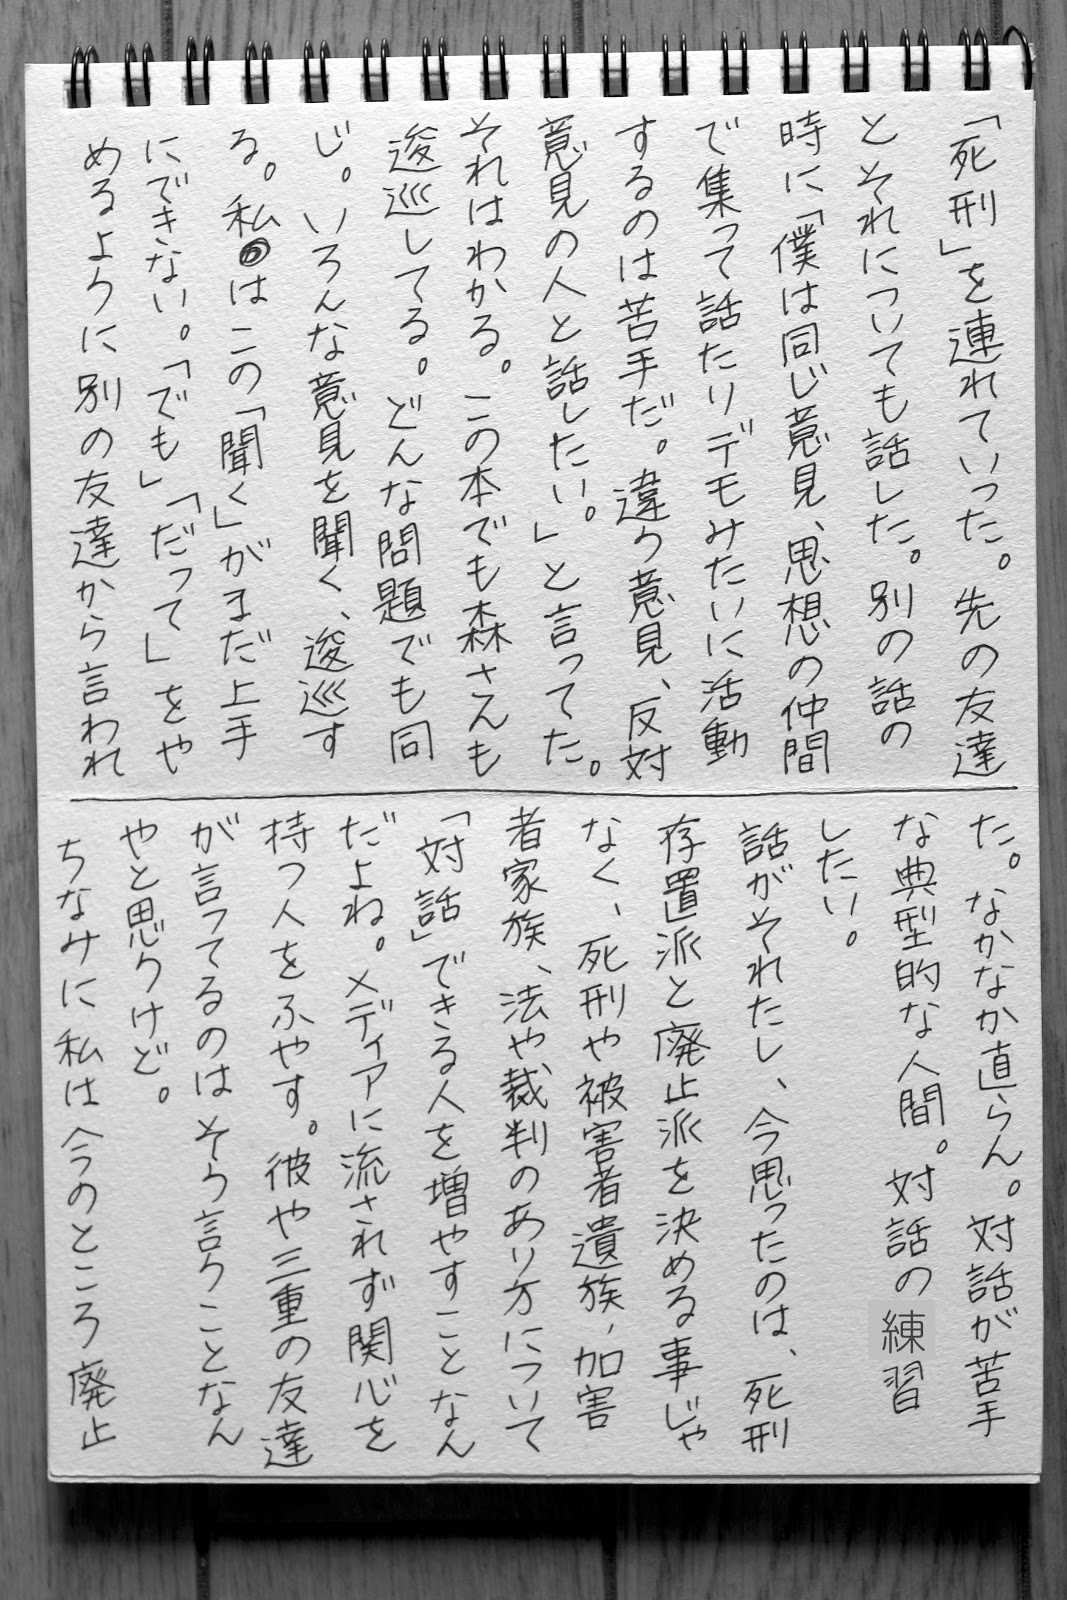 「死刑」を連れていった。先の友達
とそれについても話した。別の話の
時に「僕は同じ意見、思想の仲間
で集って話たりデモみたいに活動
するのは苦手だ。違う意見、反対
意見の人と話したい。」と言ってた。
それはわかる。この本でも森さんも
逡巡してる。どんな問題でも同
じ。いろんな意見を聞く、逡巡す
る。私はこの「聞く」がまだ上手
にできない。「でも」「だって」をや
めるように別の友達から言われ
た。なかなか直らん。対話が苦手
な典型的な人間。対話の練習
したい。
話がそれたし、今思ったのは、死刑
存置派と廃止派を決める事じゃ
なく、死刑や被害者遺族、加害
者家族、法や裁判のあり方について
「対話」できる人を増やすことなん
だよね。メディアに流されず関心を
持つ人をふやす。彼や三重の友達
が言ってるのはそう言うことなん
やと思うけど。
ちなみに私は今のところ廃止